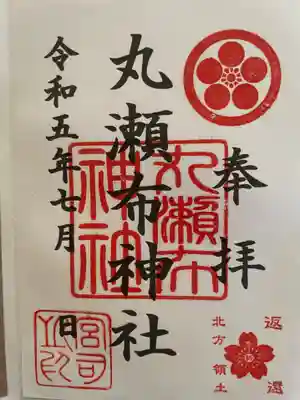 奉拝
丸瀬布神社
令和五年七月 日
丸瀬布
神社
宮司之印
返還
北方領土